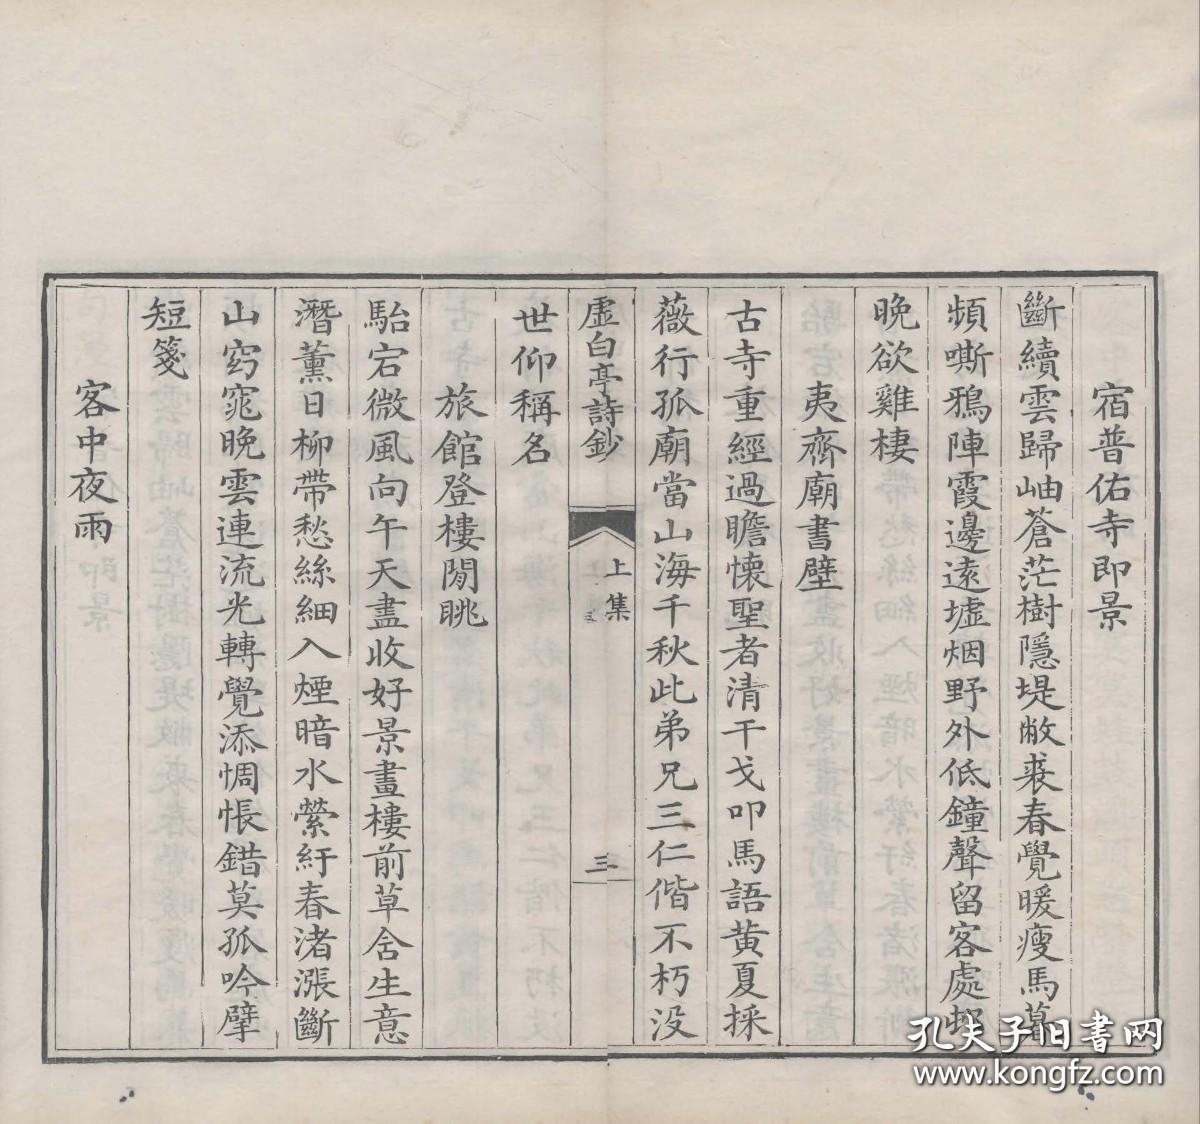 宿普佑寺即景
斷續雲歸岫蒼茫樹隱堤敝裘春覺暖瘦馬暮
頻嘶鴉陣霞邊遠墟烟野外低鐘聲留客處邨
晚欲雞棲
夷齊廟書壁
古寺重經過瞻懷聖者清干戈叩馬語黃夏採
薇行孤廟當山海千秋此弟兄三仁偕不朽没
虛白亭詩鈔
上集
三
世仰稱名
旅館登樓閒眺
駘宕微風向午天盡收好景畫樓前草含生意
潛薰日柳帶愁絲細入煙暗水縈紆春渚漲斷
山窈窕晚雲連流光轉覺添惆悵錯莫孤吟擘
短箋
客中夜雨
孔夫子旧书网
www.kongfz.com